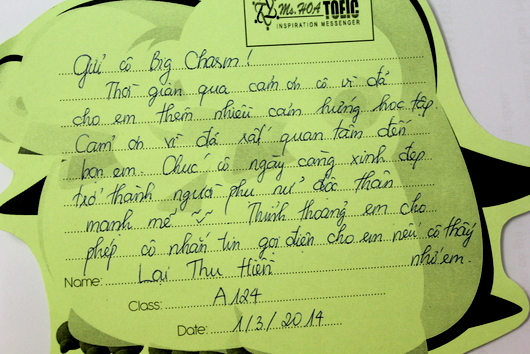 Ms. HOA TOEIC
INSPIRATION MESSENGER
Gửi cô Big Charm!
Thời gian qua cảm ơn cô vì đã
cho em thêm nhiều cảm hứng học tập
Cảm ơn vì đã rất quan tâm đến
bọn em. Chúc cô ngày càng xinh đẹp
trở thành người phụ nữ độc thân
mạnh mẽ ~~ Thỉnh thoảng em cho
phép cô nhắn tin gọi điện cho em nếu cô thấy
nhớ em.
Name: Lại Thu Hiền
Class: A124
Date: 1/3/2014